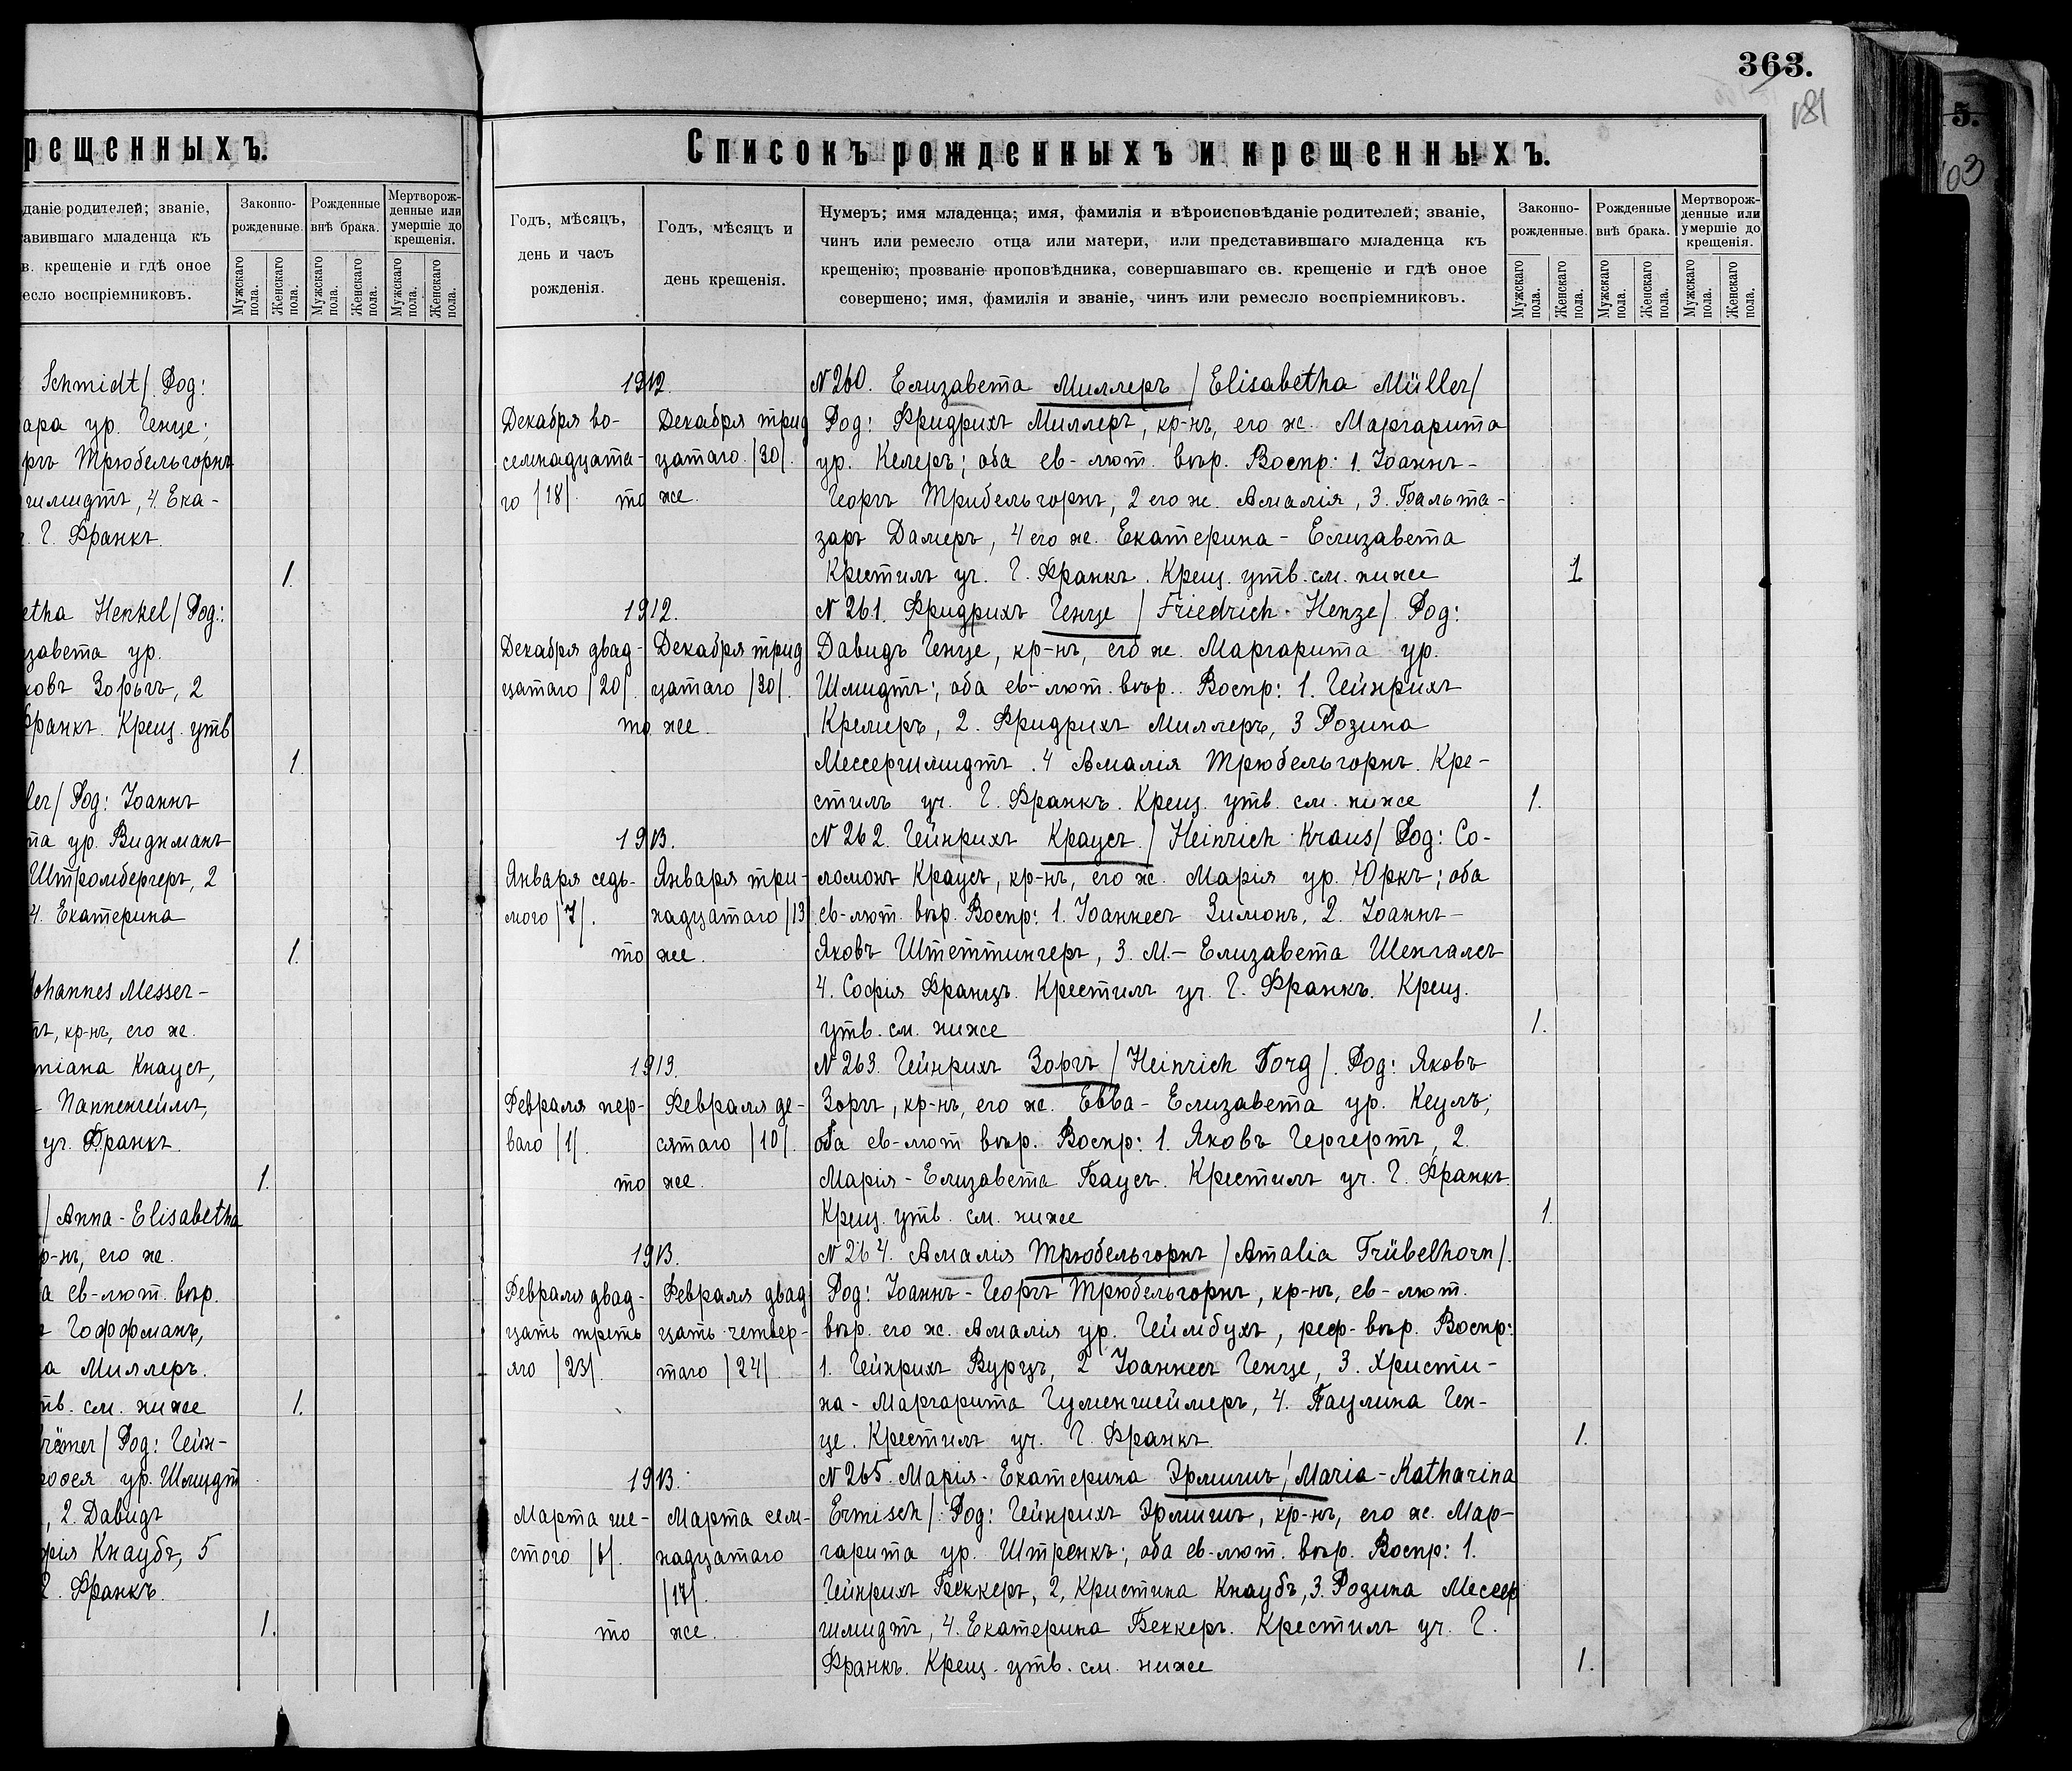 рещенныхъ.
даніе родителей; званіе,
тавившаго младенца къ
в. крещеніе и гдѣ оное
месло воспріемниковъ.
Законно-
рожденные.
Рожденные
внѣ брака.
Мертворож-
денные или
умершіе до
крещенія.
Мужскаго пола.
Женскаго пола.
Мужскаго пола.
Женскаго пола.
Мужскаго пола.
Женскаго пола.
Schmidt/. Род:
ара ур. Генце;
ргъ Трюбельгорнъ
шмидтъ, 4. Ека-
. Г. Франкъ.
1.
etha Henkel/ Род.:
изавета ур.
ковъ Зоргъ, 2
Франкъ. Крещ. утв
1.
ler/ Род: Іоаннъ
та ур. Видманъ
Штромбергеръ, 2
4. Екатерина
1.
Johannes Messer-
тъ, кр-нъ, его ж.
тіана Кнаусъ,
- Паппенгеймъ,
уч. Франкъ.
1.
/ Anna-Elisabetha
р-нъ, его ж.
а ев-лют. вѣр.
ъ Гоффманъ,
а Миллеръ.
тв. см. ниже
1.
rämer/ Род: Гейн-
роѳея ур. Шмидтъ
, 2. Давидъ
фія Кнаубъ, 5
Г. Франкъ.
1.
363.
181
Списокъ рожденныхъ и крещенныхъ.
Годъ, мѣсяцъ,
день и часъ
рожденія.
Годъ, мѣсяцъ и
день крещенія.
Нумеръ; имя младенца; имя, фамилія и вѣроисповѣданіе родителей; званіе,
чинъ или ремесло отца или матери, или представившаго младенца къ
крещенію; прозваніе проповѣдника, совершавшаго св. крещеніе и гдѣ оное
совершено; имя, фамилія и званіе, чинъ или ремесло воспріемниковъ.
Законно-
рожденные.
Рожденные
внѣ брака.
Мертворож-
денные или
умершіе до
крещенія.
Мужскаго пола.
Женскаго пола.
Мужскаго пола.
Женскаго пола.
Мужскаго пола.
Женскаго пола.
1912. N 260. Елизавета Миллеръ / Elisabetha Müller/
Декабря во- Декабря трид Род: Фридрихъ Миллеръ, кр-нъ, его ж. Маргарита
семнадцата- цатаго /30/. ур. Келеръ; оба ев-лют. вѣр. Воспр: 1. Іоаннъ-
го /18/. то же. Георгъ Трибельгорнъ, 2 его ж. Амалія, 3. Бальта-
заръ Дамеръ, 4 его ж. Екатерина-Елизавета
Крестилъ уч. Г. Франкъ. Крещ. утв. см. ниже 1
1912. N 261. Фридрихъ Генце / Friedrich Henze/. Род:
Декабря двад- Декабря трид Давидъ Генце, кр-нъ, его ж. Маргарита ур.
цатаго /20/. цатаго /30/. Шмидтъ; оба ев-лют. вѣр.. Воспр: 1. Гейнрихъ
то же. Кремеръ, 2. Фридрихъ Миллеръ, 3 Розина
Мессершмидтъ. 4 Амалія Трюбельгорнъ. Кре-
стилъ уч. Г. Франкъ. Крещ. утв. см. ниже 1.
1913. N 262. Гейнрихъ Краусъ / Heinrich Kraus/ Род: Со-
Января седь- Января три- ломонъ Краусъ, кр-нъ, его ж. Марія ур. Юркъ; оба
мого /7/. надцатаго /13 ев-лют. вѣр. Воспр: 1. Іоаннесъ Зимонъ, 2. Іоаннъ-
то же. Яковъ Штеттингеръ, 3. М.-Елизавета Шенгалсъ
4. Софія Францъ. Крестилъ уч. Г. Франкъ. Крещ.
утв. см. ниже 1.
1913. N 263. Гейнрихъ Зоргъ / Heinrich Sorg/. Род: Яковъ
Февраля пер- Февраля де- Зоргъ, кр-нъ, его ж. Евва-Елизавета ур. Кеулъ;
ваго /1/. сятаго /10/. оба ев-лют вѣр. Воспр: 1. Яковъ Гергертъ, 2.
то же. Марія-Елизавета Баусъ. Крестилъ уч. Г. Франкъ.
Крещ. утв. см. ниже 1.
1913. N 264. Амалія Трюбельгорнъ / Amalia Trübelhorn/.
Февраля двад- Февраля двад Род: Іоаннъ-Георгъ Трюбельгорнъ, кр-нъ, ев-лют.
цать треть цать четвер- вѣр. его ж. Амалія ур. Геймбухъ, реф-вѣр. Воспр:
яго /23/. таго /24/. 1. Гейнрихъ Вурцъ, 2 Іоаннесъ Генце, 3. Христи-
на-Маргарита Гуменшеймеръ, 4. Паулина Ген-
це. Крестилъ уч. Г. Франкъ. 1.
1913. N 265. Марія-Екатерина Эрмишъ / Maria-Katharina
Марта ше- Марта сем- Ermisch/. Род: Гейнрихъ Эрмишъ, кр-нъ, его ж. Мар-
стого /6/. надцатаго гарита ур. Штренкъ; оба ев-лют. вѣр. Воспр: 1.
/17/. Гейнрихъ Беккеръ, 2, Кристина Кнаубъ, 3. Розина Мессер
то же. шмидтъ, 4. Екатерина Беккеръ. Крестилъ уч. Г.
Франкъ. Крещ. утв. см. ниже 1.
5.
103